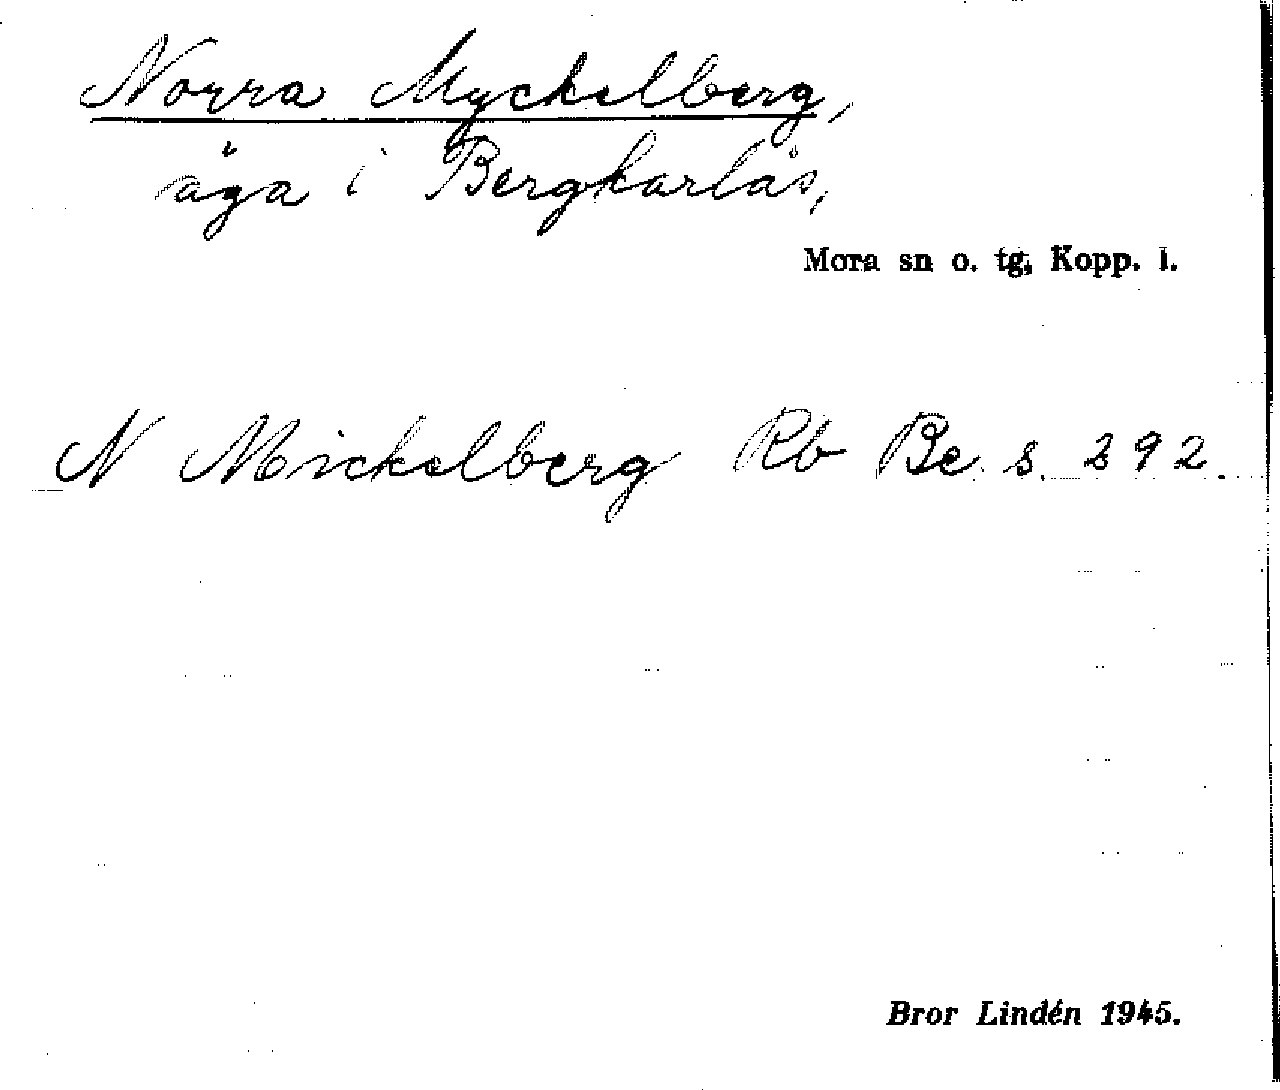 Norra Myckelberg,
äga i Bergkarlås,
Mora sn o. tg, Kopp. l.
N Mickelberg Rb Be s. 292.
Bror Lindén 1945.